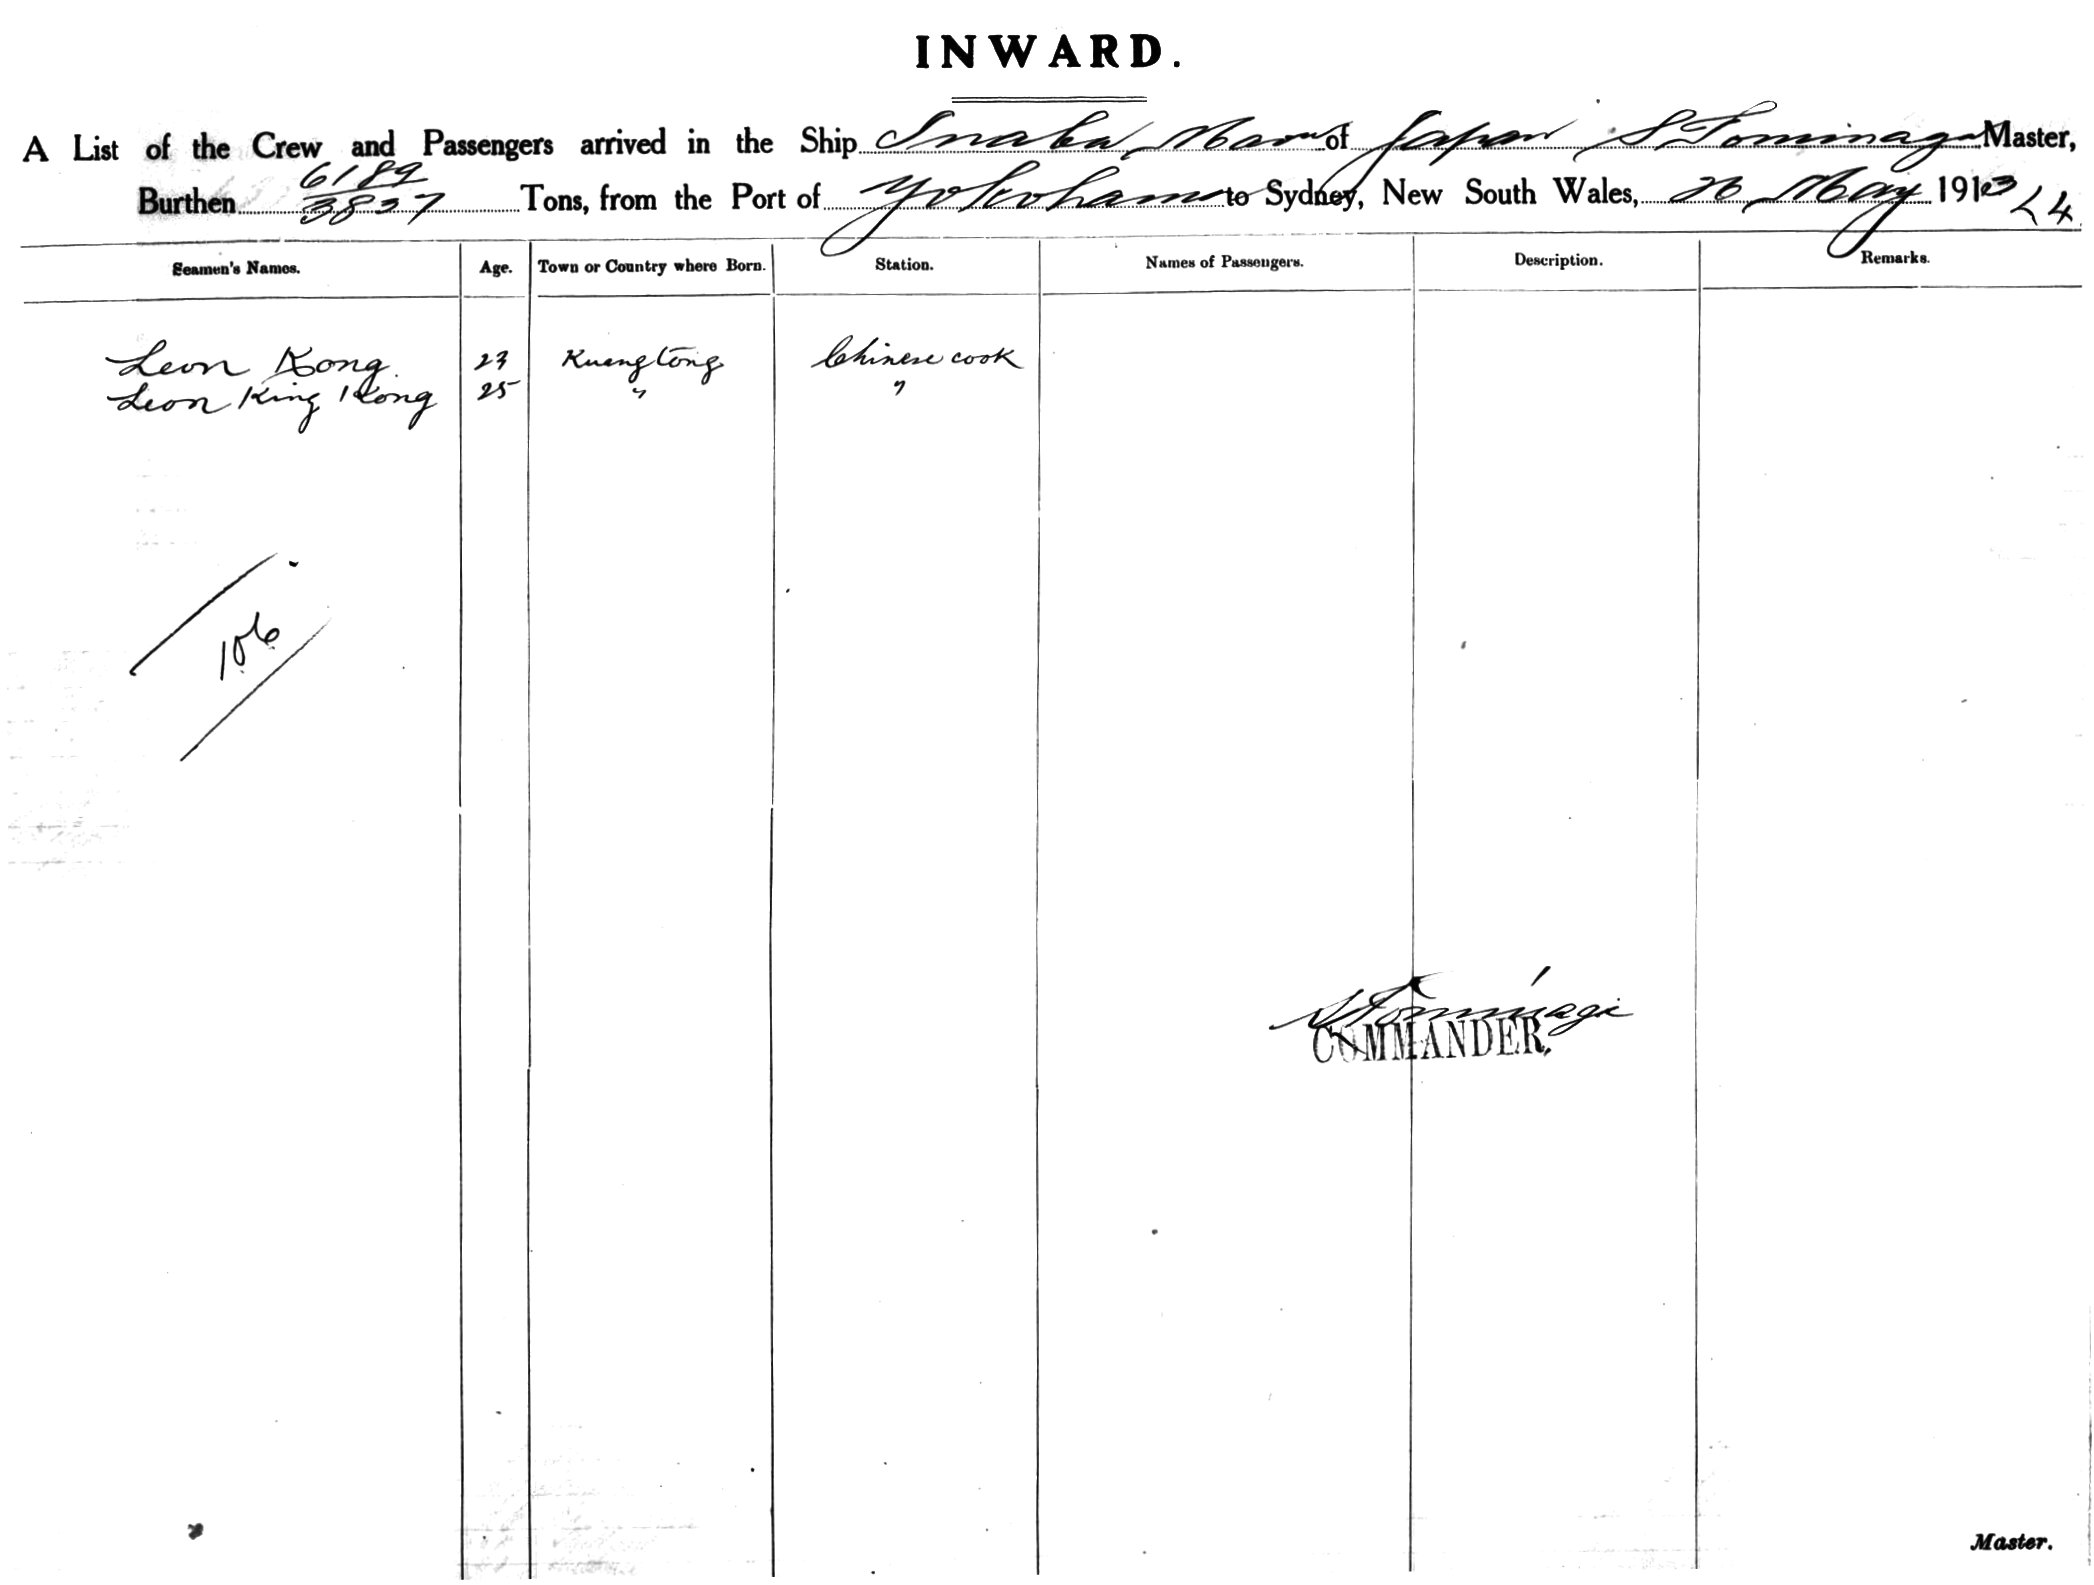 INWARD.
A List of the Crew and Passengers arrived in the Ship Inaba Maru of Japan S Tominaga Master,
6189
Burthen 3837 Tons, from the Port of Yokohama to Sydney, New South Wales, 26 May 1913 < 4
Seamen's Names. Age. Town or Country where Born. Station. Names of Passengers. Description. Remarks.
Leon Kong. 23 Kuangtong Chinese cook
Leon King Kong 25 " "
106
S Tominaga
COMMANDER.
Master.